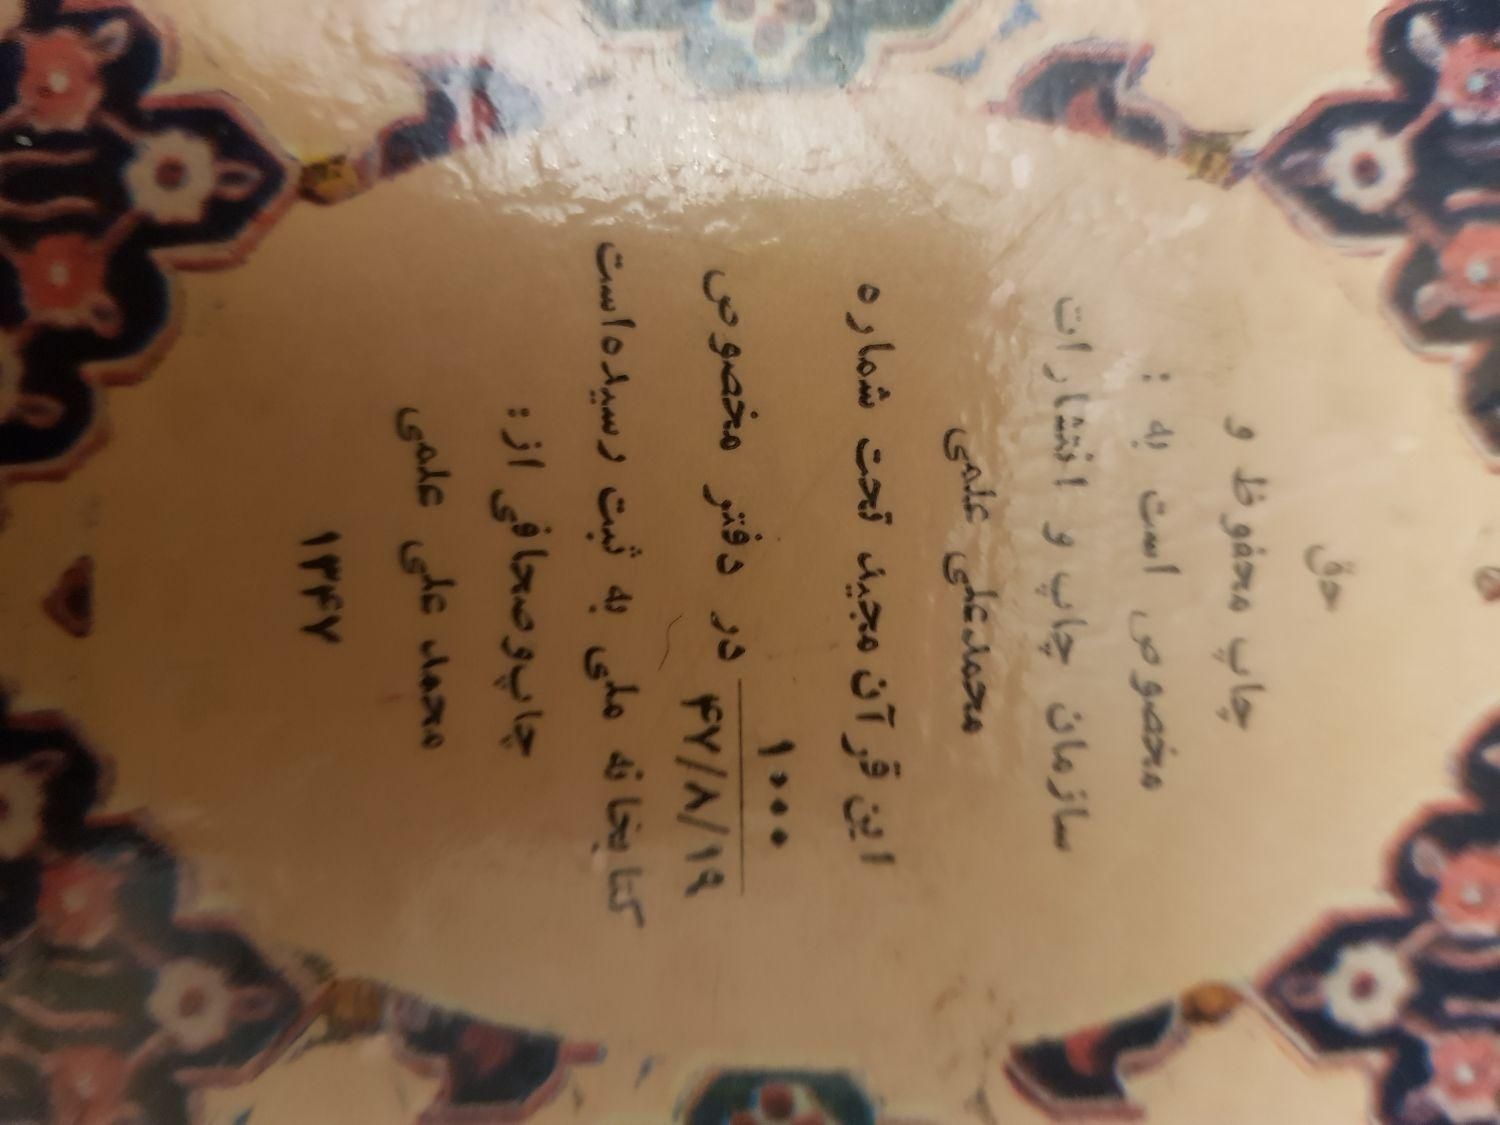 حق
چاپ محفوظ و
مخصوص است به :
سازمان چاپ و انتشارات
محمدعلی علمی
این قرآن مجید تحت شماره
۱۰۰۰
۴۷/۸/۱۹ در دفتر مخصوص
کتابخانه ملی به ثبت رسیده‌است
چاپ‌وصحافی از :
محمد علی علمی
۱۳۴۷